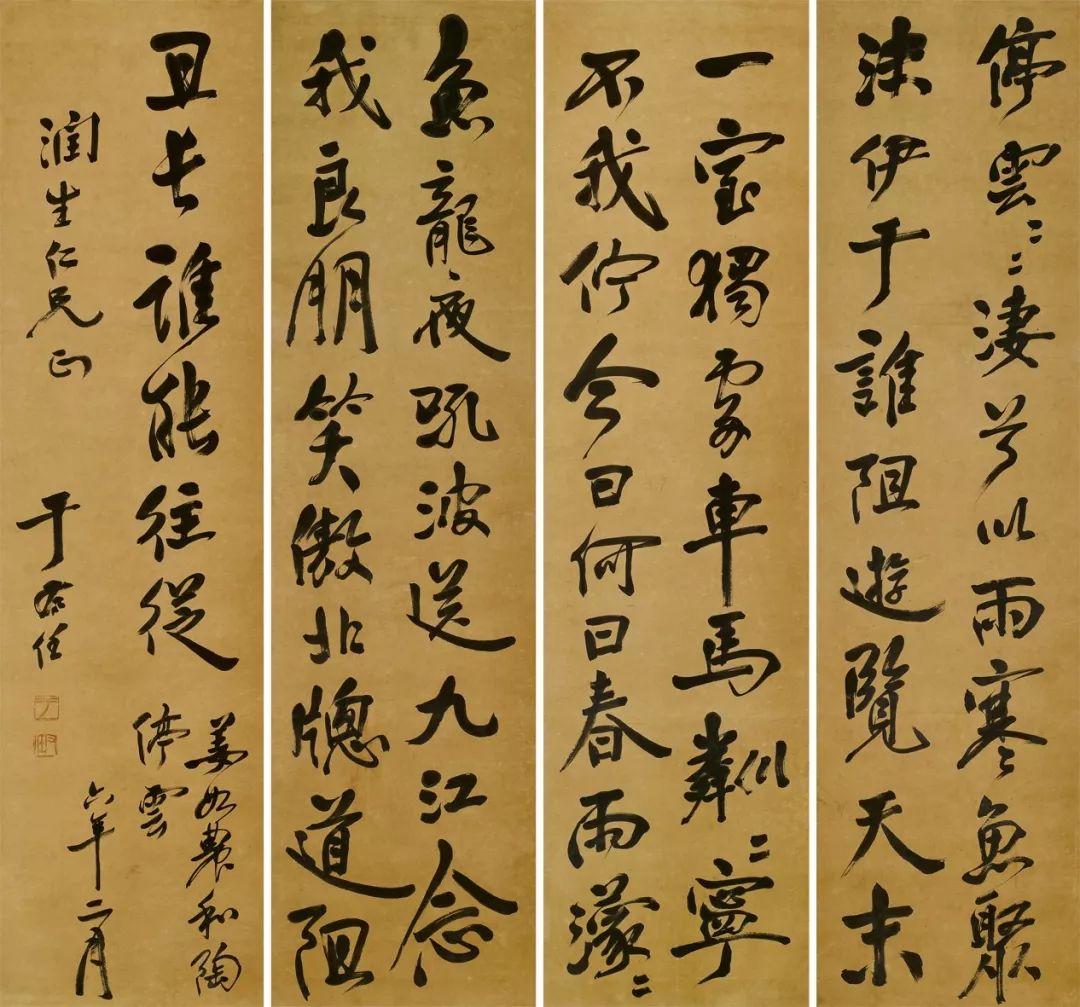 停雲〻〻淒兮以雨寒魚聚
沫伊于誰阻遊覽天末
一室獨處車馬粼〻寧
不我佇今日何日春雨濛〻
魚龍夜吼波送九江念
我良朋笑傲北牕道阻
且長誰能往從
姜如農和陶
停雲
六年二月
潤生仁兄正
于右任